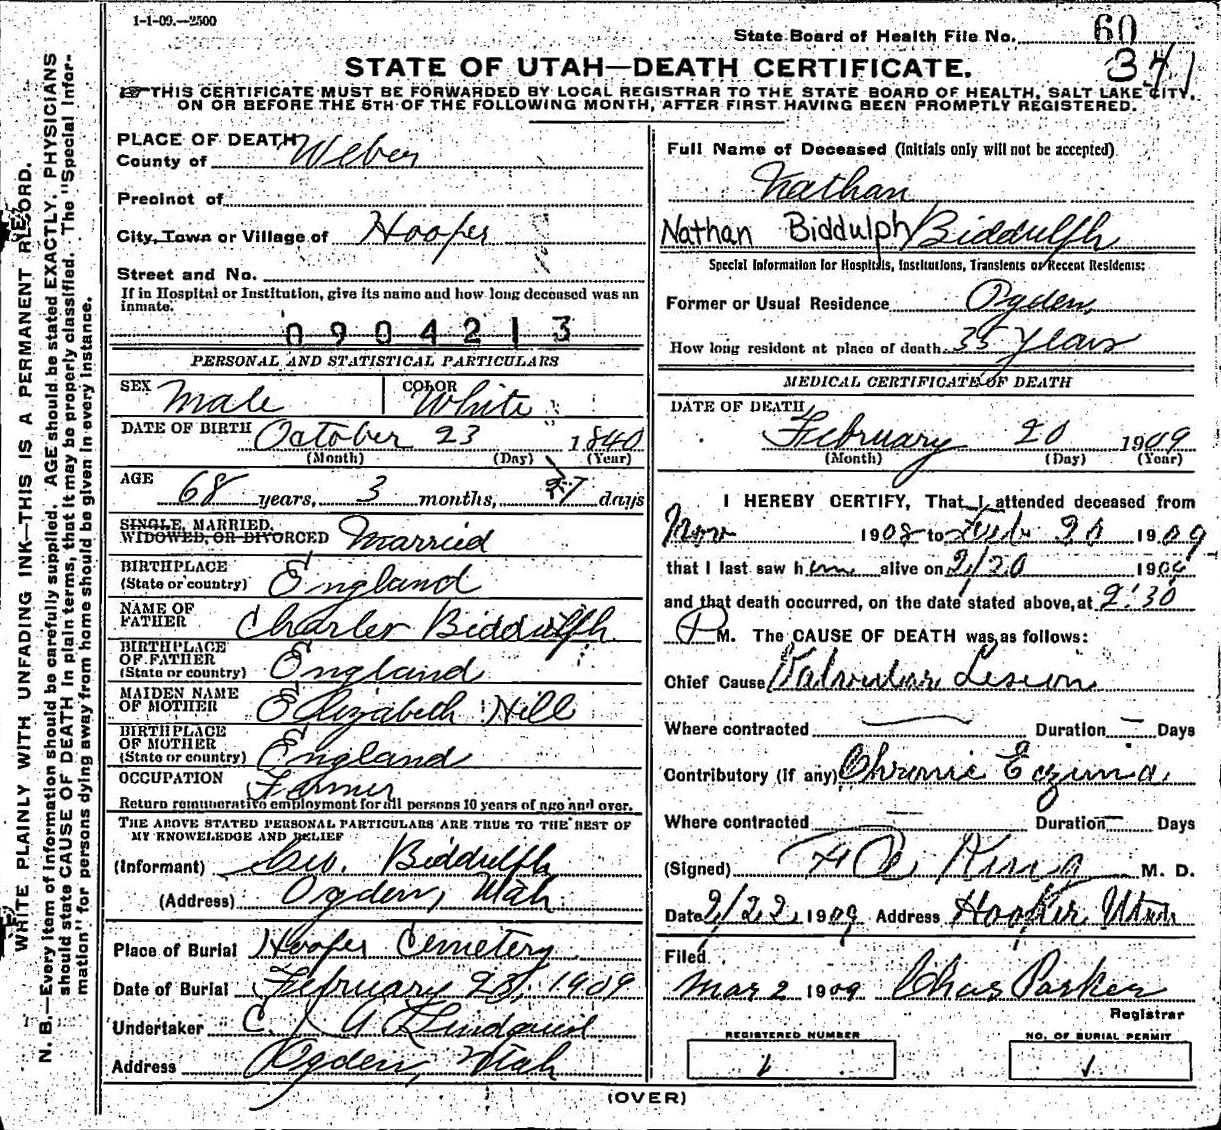 1-1-09.—2500
State Board of Health File No. 60
341
STATE OF UTAH—DEATH CERTIFICATE.
☞THIS CERTIFICATE MUST BE FORWARDED BY LOCAL REGISTRAR TO THE STATE BOARD OF HEALTH, SALT LAKE CITY,
ON OR BEFORE THE 5TH OF THE FOLLOWING MONTH, AFTER FIRST HAVING BEEN PROMPTLY REGISTERED.
WRITE PLAINLY WITH UNFADING INK—THIS IS A PERMANENT RECORD.
N. B.—Every item of information should be carefully supplied. AGE should be stated EXACTLY. PHYSICIANS
should state CAUSE OF DEATH in plain terms, that it may be properly classified. The "Special Infor-
mation" for persons dying away from home should be given in every instance.
PLACE OF DEATH
County of Weber
Precinct of
City, Town or Village of Hooper
Street and No.
If in Hospital or Institution, give its name and how long deceased was an
inmate.
0904213
PERSONAL AND STATISTICAL PARTICULARS
SEX Male COLOR White
DATE OF BIRTH October 23 1840
(Month) (Day) (Year)
AGE 68 years, 3 months, 27 days
SINGLE, MARRIED,
WIDOWED, OR DIVORCED Married
BIRTHPLACE
(State or country) England
NAME OF
FATHER Charles Biddulph
BIRTHPLACE
OF FATHER
(State or country) England
MAIDEN NAME
OF MOTHER Elizabeth Hill
BIRTHPLACE
OF MOTHER
(State or country) England
OCCUPATION Farmer
Return remunerative employment for all persons 10 years of age and over.
THE ABOVE STATED PERSONAL PARTICULARS ARE TRUE TO THE BEST OF
MY KNOWLEDGE AND BELIEF
(Informant) Geo. Biddulph
(Address) Ogden, Utah
Place of Burial Hooper Cemetery
Date of Burial February 23, 1909
Undertaker
Address Ogden, Utah
Full Name of Deceased (Initials only will not be accepted)
Nathan
Nathan Biddulph Biddulph
Special Information for Hospitals, Institutions, Transients or Recent Residents:
Former or Usual Residence Ogden,
How long resident at place of death 35 Years
MEDICAL CERTIFICATE OF DEATH
DATE OF DEATH
February 20 1909
(Month) (Day) (Year)
I HEREBY CERTIFY, That I attended deceased from
Nov 1908 to Feb 20 1909
that I last saw him alive on 2/20 1909
and that death occurred, on the date stated above, at 2:30
P M. The CAUSE OF DEATH was as follows:
Chief Cause Valvular Lesion
Where contracted — Duration — Days
Contributory (if any) Chronic Eczema
Where contracted — Duration — Days
(Signed) M. D.
Date 2/22 1909 Address Hooper Utah
Filed
Mar 2 1909 Chas Parker
Registrar
REGISTERED NUMBER
1
NO. OF BURIAL PERMIT
1
(OVER)